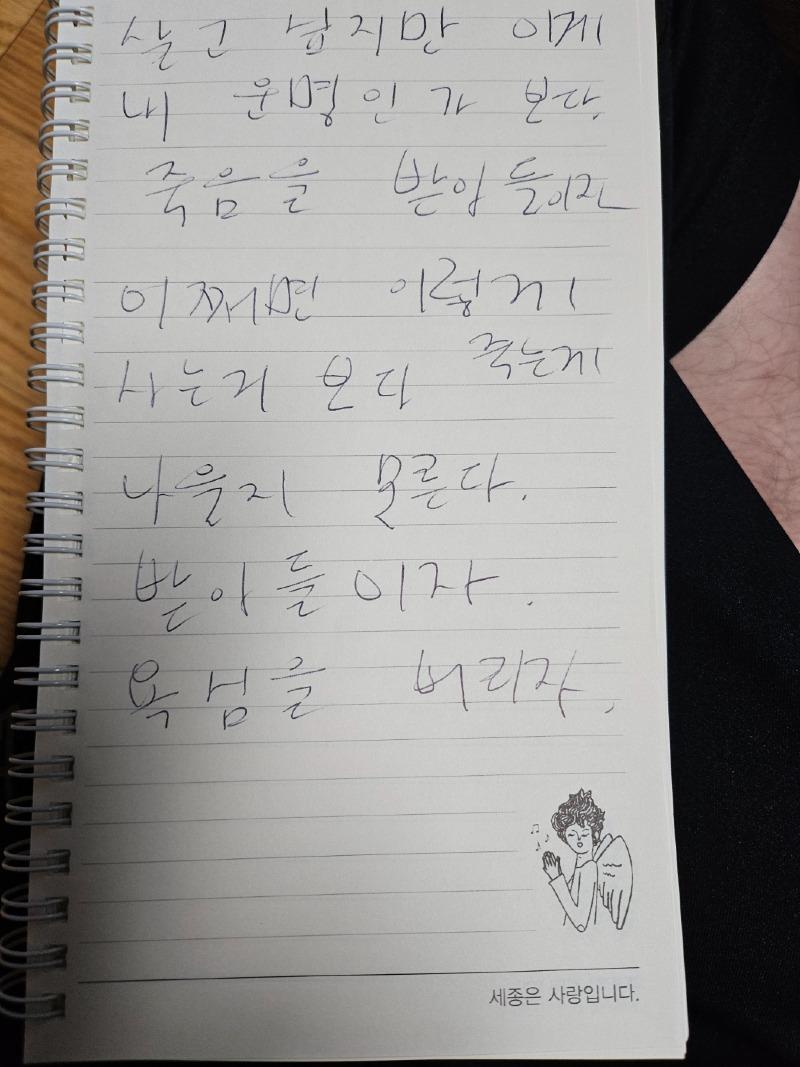 살고 싶지만 이게
내 운명인가 보다.
죽음을 받아들이자
어쩌면 이렇게
사는거 보다 죽는게
나을지 모른다.
받아들이자.
욕심을 버리자.
세종은 사랑입니다.